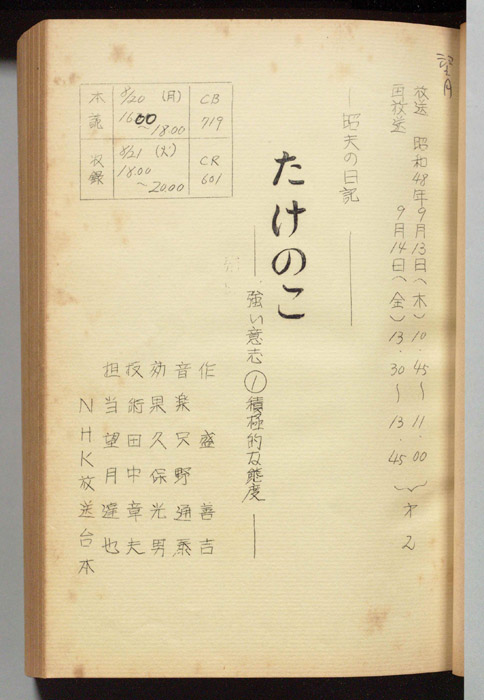 望月
放送 昭和48年9月13日(木) 10.45～11.00
再放送 9月14日(金) 13.30～13.45
} 才2
―昭夫の日記―
たけのこ
―強い意志①積極的な態度―
作 盛 善吉
音楽 只野通泰
効果 久保光男
技術 田中章夫
担当 望月達也
NHK放送台本
本読 8/20 (月) 1600～1800 CB719
収録 8/21 (火) 1800～2000 CR601